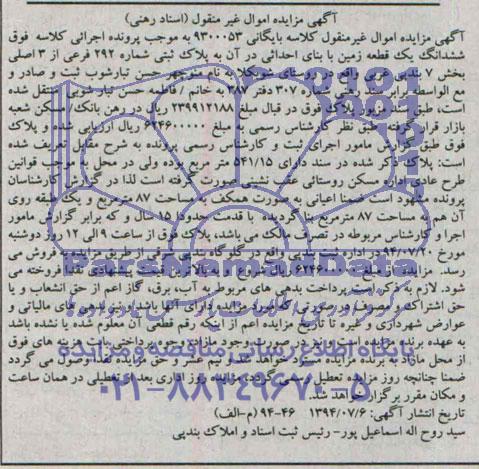 آگهی مزایده اموال غیر منقول (اسناد رهنی)
آگهی مزایده اموال غیرمنقول کلاسه بایگانی ۹۳۰۰۰۵۳ به موجب پرونده اجرائی کلاسه فوق
ششدانگ یک قطعه زمین با بنای احداثی در آن به پلاک ثبتی شماره ۲۹۲ فرعی از ۳ اصلی
بخش ۷ بندپی غربی واقع در روستای شوبکلا به نام منوچهر حسن تبارشوب ثبت و صادر و
مع الواسطه برابر سند قطعی شماره ۳۰۷ دفتر ۲۸۷ به خانم / فاطمه حسن تبار شوبی منتقل شده
است، طبق سند مزبور پلاک فوق در قبال مبلغ ۲۳۹۹۱۲۱۸۸ ریال در رهن بانک/ مسکن شعبه
بازار قرار گرفته، طبق نظر کارشناس رسمی به مبلغ ۶۲۴۶۰۰۰۰۰ ریال ارزیابی شده و پلاک
فوق طبق گزارش مامور اجرای ثبت و کارشناس رسمی پرونده به شرح مقابل تعریف شده
است: پلاک ذکر شده در سند دارای ۵۴۱/۱۵ متر مربع بوده ولی در محل به موجب قوانین
طرح هادی اداره مسکن روستائی عقب نشینی صورت گرفته است لذا در گزارش کارشناسان
پرونده مشهود است ضمنا اعیانی به صورت همکف به مساحت ۸۷ مترمربع و یک طبقه روی
آن هم به مساحت ۸۷ مترمربع بنا گردیده با قدمت حدودا ۱۵ سال و که برابر گزارش مامور
اجرا و کارشناس مربوطه در تصرف مالک می باشد، پلاک فوق از ساعت ۹ الی ۱۲ روز دوشنبه
مورخ ۹۴/۰۷/۲۰ در اداره ثبت بندپی واقع در گلوگاه بندپی شرقی از طریق مزایده به فروش می
رسد. مزایده از مبلغ ۶۲۴۶۰۰۰۰۰ ریال شروع و به بالاترین قیمت پیشنهادی نقدا فروخته می
شود. لازم به ذکر است پرداخت بدهی های مربوط به آب، برق، گاز اعم از حق انشعاب و یا
حق اشتراک و مصرف و در صورتی که مورد مزایده دارای آنها باشد و نیز بدهی های مالیاتی و
عوارض شهرداری و غیره تا تاریخ مزایده اعم از اینکه رقم قطعی آن معلوم شده یا نشده باشد
به عهده برنده مزایده است و نیز در صورت وجود مازاد، وجوه پرداختی بابت هزینه های فوق
از محل مازاد به برنده مزایده مسترد خواهد شد و نیم عشر و حق مزایده نقدا وصول می گردد
ضمنا چنانچه روز مزایده تعطیل رسمی گردد، مزایده روز اداری بعد از تعطیلی در همان ساعت
و مکان مقرر برگزار خواهد شد.
تاریخ انتشار آگهی: ۱۳۹۴/۰۷/۶ ۴۶-۹۴ (م-الف)
سید روح اله اسماعیل پور- رئیس ثبت اسناد و املاک بندپی
ParsNamadData
پایگاه اطلاع رسانی مناقصه و مزایده
۰۲۱-۸۸۳۴۹۶۷۰-۵